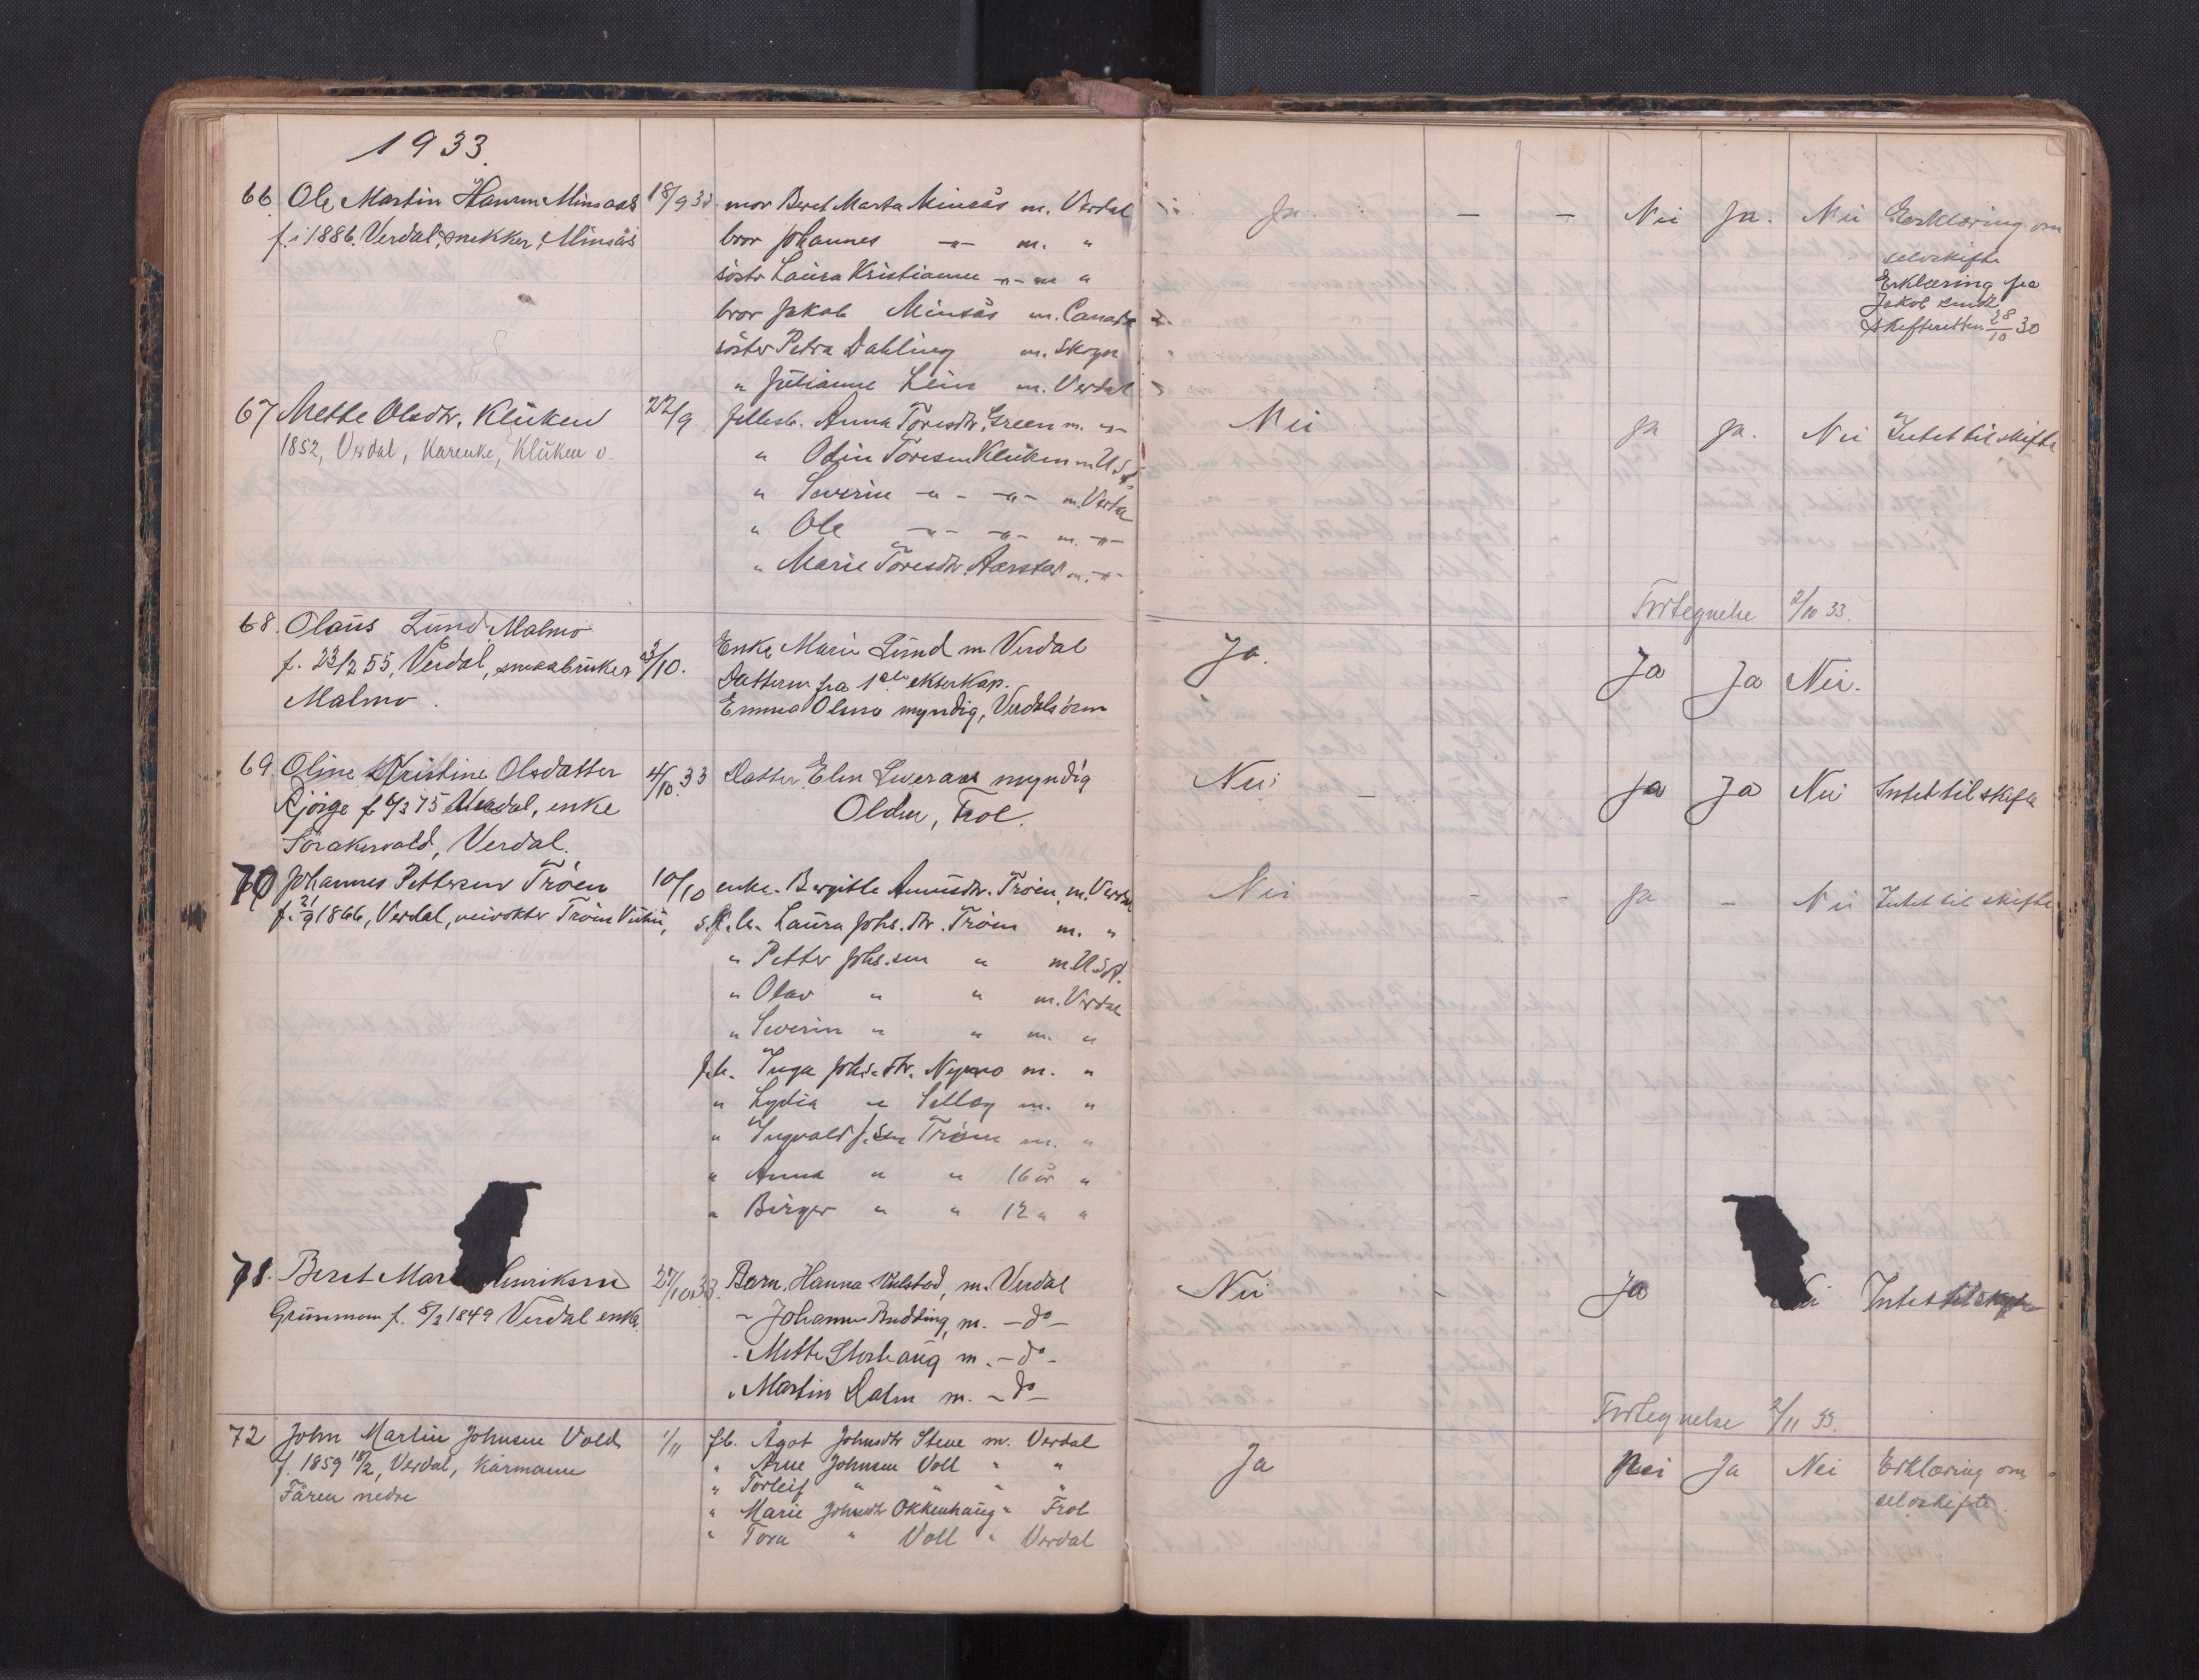 1933.
66 Ole Martin Hansen Minsaas 18/9 33. mor Beret Marta Minsås m. Verdal Ja. — — Nei Ja. Nei Erklæring om
f. i 1886. Verdal, snekker, Minsås bror Johannes —"— m. " selvskifte
søster Laura Kristianne —"— m " Erklæring fra
bror Jakob Minsås m. Canada Jakob sendt
skifteretten 28/10 30
søster Petra Dahling m. Skogn
" Julianne Lein m. Verdal
67 Mette Olsdtr. Kluken 22/9 fellesb. Anna Toresdtr. Green m. —"— Nei Ja Ja. Nei Intet til skifte
1852, Verdal, Karenke, Kluken v. " Odin Toresen Kluken m. U.S.A.
" Severin —"— —"— m. Verdal
" Ole —"— —"— m. —"—
" Marie Toresdtr. Aarstad m. —"—
Fortegnelse 2/10 33.
68. Olaus Lund Malmo 3/10. Enke Marie Lund m Verdal Ja. Ja Ja Nei.
f. 23/2 55, Verdal, småbruker Datteren fra 1ste ekteskap.
Malmo. Emma Olsen myndig, Verdalsøren
69 Oline Kristine Olsdatter 4/10. 33 Datter Elen Sveraas myndig Nei — Ja Ja Nei Intet til skifte
f. 6/3 75 Verdal, enke Olden, Frol.
Sørakervald, Verdal.
70 Johannes Pettersen Trøen 10/10 enke. Bergitte Trøen, m. Verdal Nei - - Ja - Nei Intet til skifte
f. 21/9 1866, Verdal, veivokter Trøen Vuku, s.f.b. Laura Johs.dtr. Trøen m. "
" Petter Johs.sen " m. U.S.A.
" Olav " " m. Verdal
" Severin " " m. "
f.b. Inga Johs.dtr. Nymo m. "
" Lydia " m. "
" Ingvald J.sen Trøen m. "
" Anna " " 16 år "
" Birger " " 12 " "
71. Beret Mar Henriksen 27/10 33. Barn, Hanna Kulstad, m. Verdal Nei - Ja Nei Intet til skifte
f. 8/2 1849 Verdal enke. " Johannes Budding, m. — do —
" Mette Storhaug m. — do —
" Martin Dalen m. — do —
Fortegnelse 2/11 33.
72 John Martin Johnsen Vold 1/11 f.b. Ågot Johnsdtr Stene m. Verdal Ja Nei Ja Nei Erklæring om
f. 1859 18/2, Verdal, kårmann " Arne Johnsen Voll " " selvskifte.
Fåren nedre " Torleif " " " "
" Marie Johnsdtr Okkenhaug " Frol
" Tora " Voll " Verdal